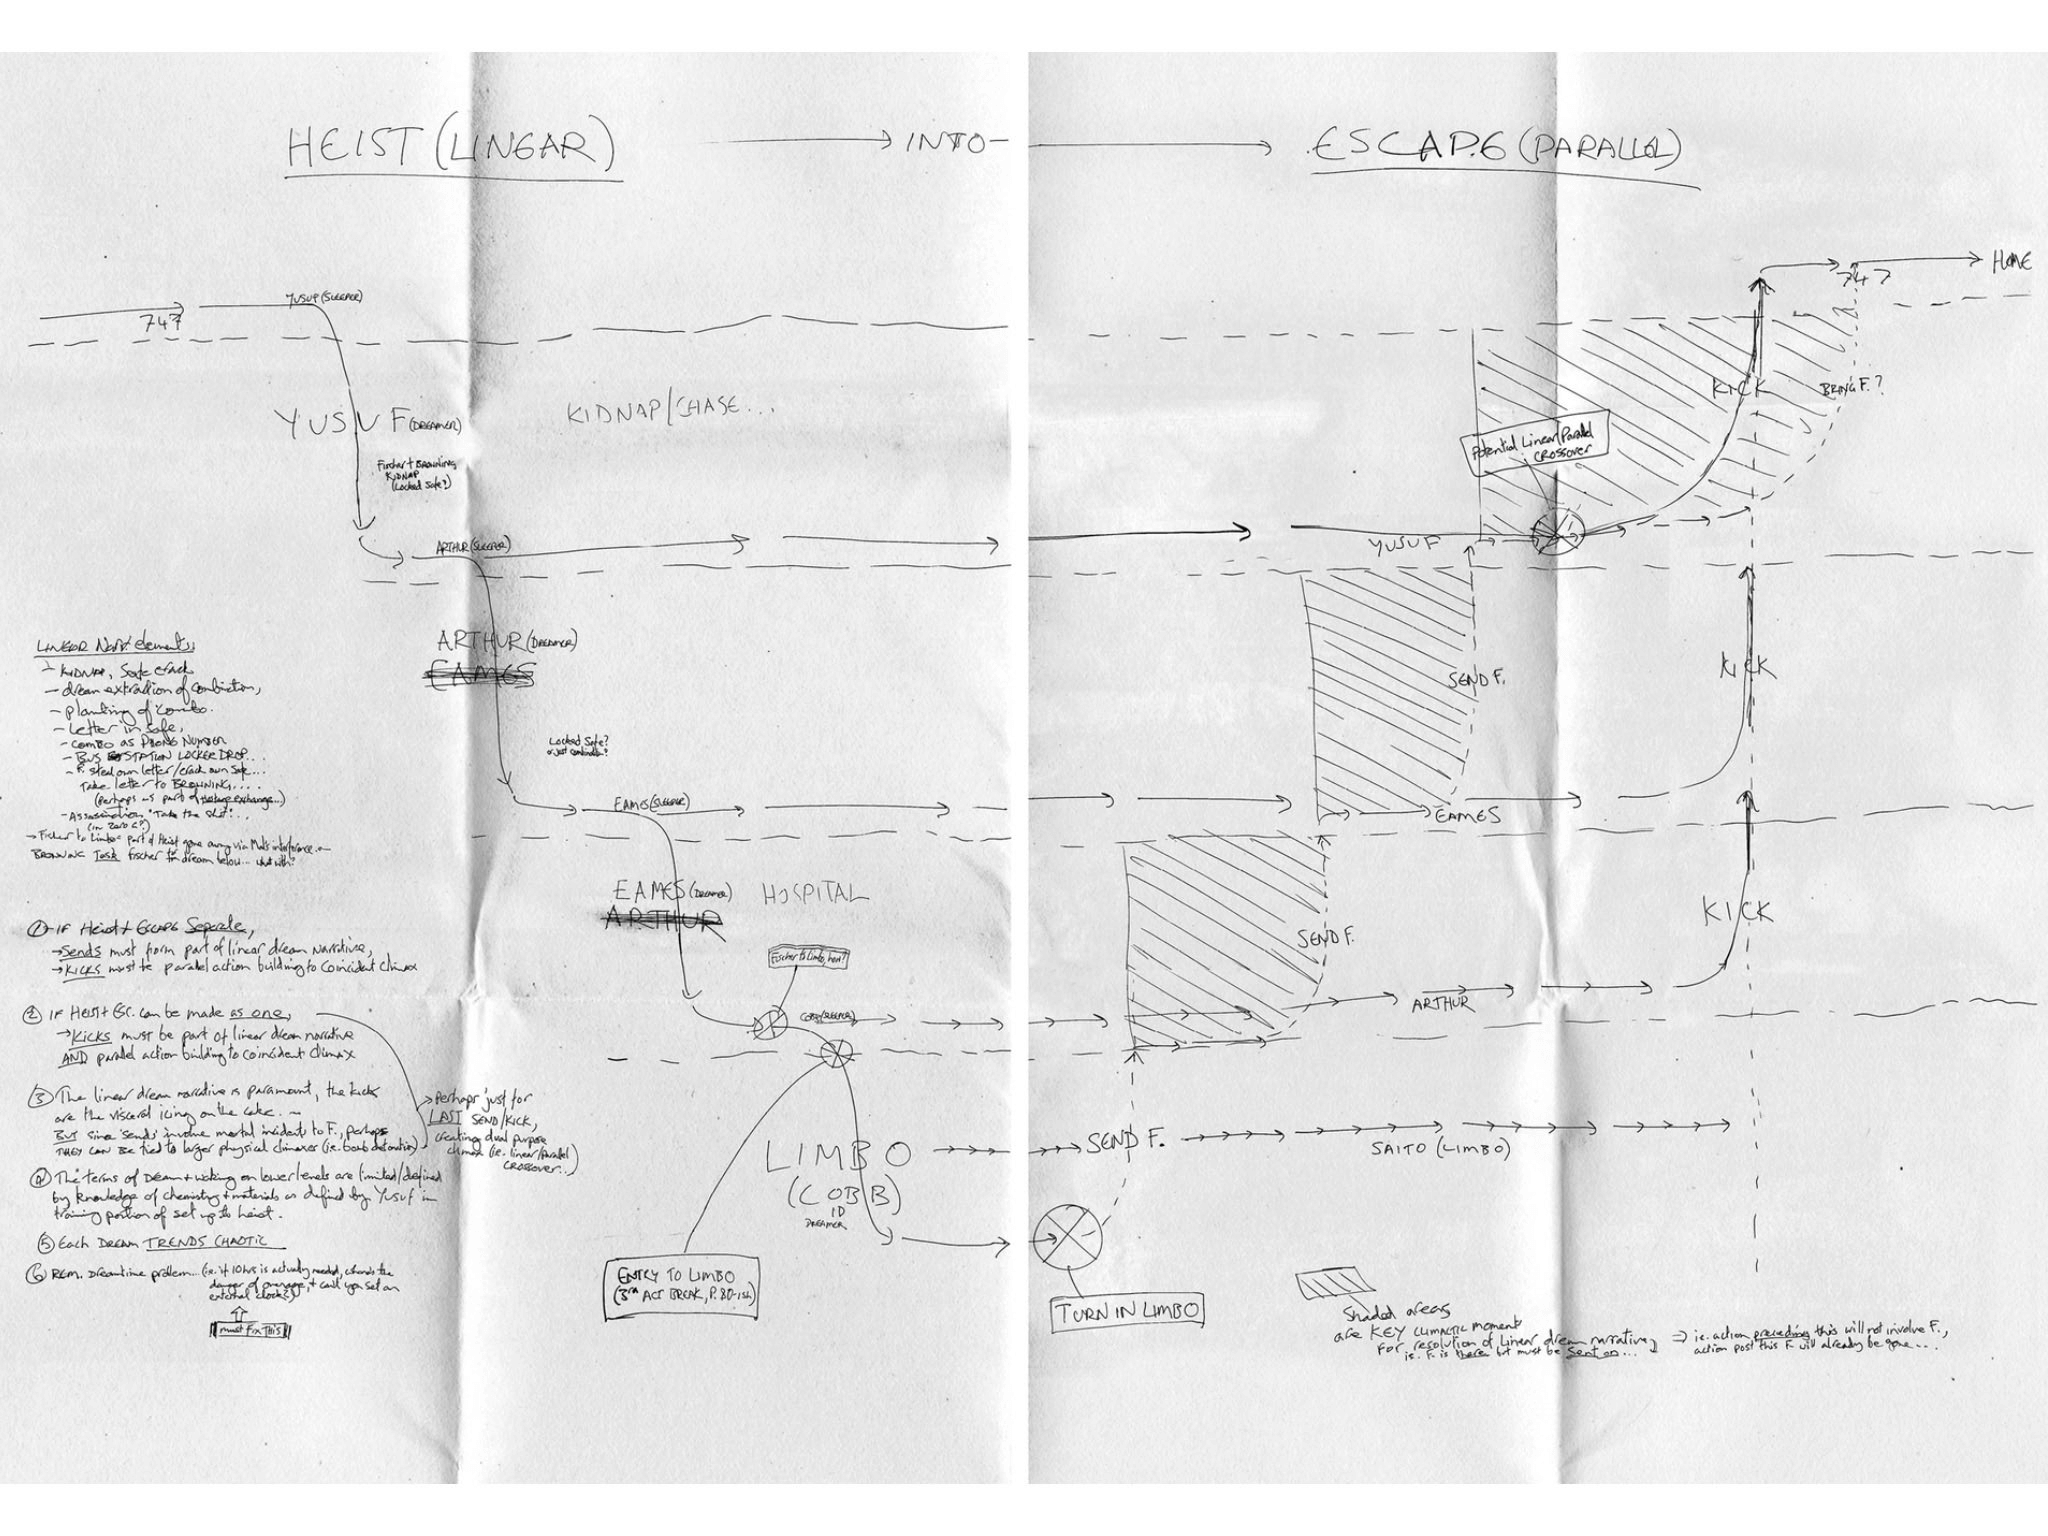 HEIST (LINEAR)
INTO-
ESCAPE (PARALLEL)
747
YUSUF (SLEEPER)
YUSUF (DREAMER)
KIDNAP/CHASE...
Fischer + BROWNING
KIDNAP
(Locked Safe?)
ARTHUR (SLEEPER)
ARTHUR (DREAMER)
EAMES
Locked Safe?
or just combination?
EAMES (SLEEPER)
EAMES (DREAMER)
ARTHUR
HOSPITAL
Fischer to Limbo, here?
COBB (SLEEPER)
LIMBO
(COBB)
DREAMER
ENTRY TO LIMBO
(3rd ACT BREAK, P. 80-ish)
LINEAR Narr. elements:
- KIDNAP, Safe crack
- dream extraction of combination,
- planting of combo.
- Letter in safe,
- combo as PHONE NUMBER
- BUS STATION LOCKER DROP...
- F. steal own letter/crack own safe...
Take letter to BROWNING....
(perhaps as part of hostage exchange...)
- Assassination "Take the shot"...
(in Zero G?)
→ Fischer to Limbo = Part of Heist gone awry via Mal's interference
BROWNING Task Fischer for dream below... what with?
① IF Heist + ESCAPE Separate,
→ Sends must form part of linear dream narrative,
→ KICKS must be parallel action building to Coincident Climax
② IF HEIST + ESC. can be made as one,
→ KICKS must be part of linear dream narrative
AND parallel action building to Coincident Climax
③ The linear dream narrative is paramount, the kicks
are the visceral icing on the cake.
BUT since 'sends' involve mortal incidents to F., perhaps
THEY CAN BE tied to larger physical climaxes (i.e. bomb detonation)
→ Perhaps just for
LAST SEND/KICK,
creating dual purpose
climax (i.e. linear/parallel
CROSSOVER...)
④ The terms of Dream + waking on lower levels are limited/defined
by knowledge of chemistry + materials as defined by Yusuf in
training portion of set up to heist.
⑤ Each DREAM TRENDS CHAOTIC
⑥ REM. Dreamtime problem... (i.e. if 10hrs is actually needed, where's the
danger of overage, + can't you set an
external clock?)
must Fix This
HOME
747
KICK
BRING F.?
Potential Linear/Parallel
CROSSOVER
YUSUF
SEND F.
KICK
EAMES
SEND F.
KICK
ARTHUR
SEND F.
SAITO (LIMBO)
TURN IN LIMBO
Shaded areas
are KEY CLIMACTIC moments
FOR resolution of Linear dream narrative,
ie. F. is there but must be Sent on...
⇒ ie. action preceding this will not involve F.,
action post this F. will already be gone....